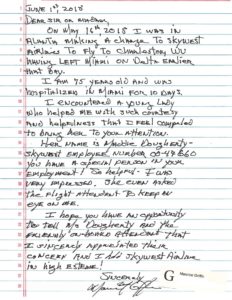 June 1st 2018
Dear Sir or Madam,
On May 16th 2018 I was in
Atlanta making a change to Skywest
Airlines to fly to Charleston, WV
having left Miami on Delta earlier
that day.
I am 75 years old and was
hospitalized in Miami for 10 days.
I encountered a young lady
who helped me with such courtesy
and helpfulness that I feel compelled
to bring her to your attention.
Her name is Dougherty-
Skywest Employee Number
you have a special person in your
employment! So helpful - I was
very impressed. She even asked
the flight attendant to keep an
eye on me.
I hope you have an opportunity
to tell Ms Dougherty and the
friendly onboard attendant that
I sincerely appreciated their
concern and I hold Skywest Airline
in high esteem!
Sincerely
G